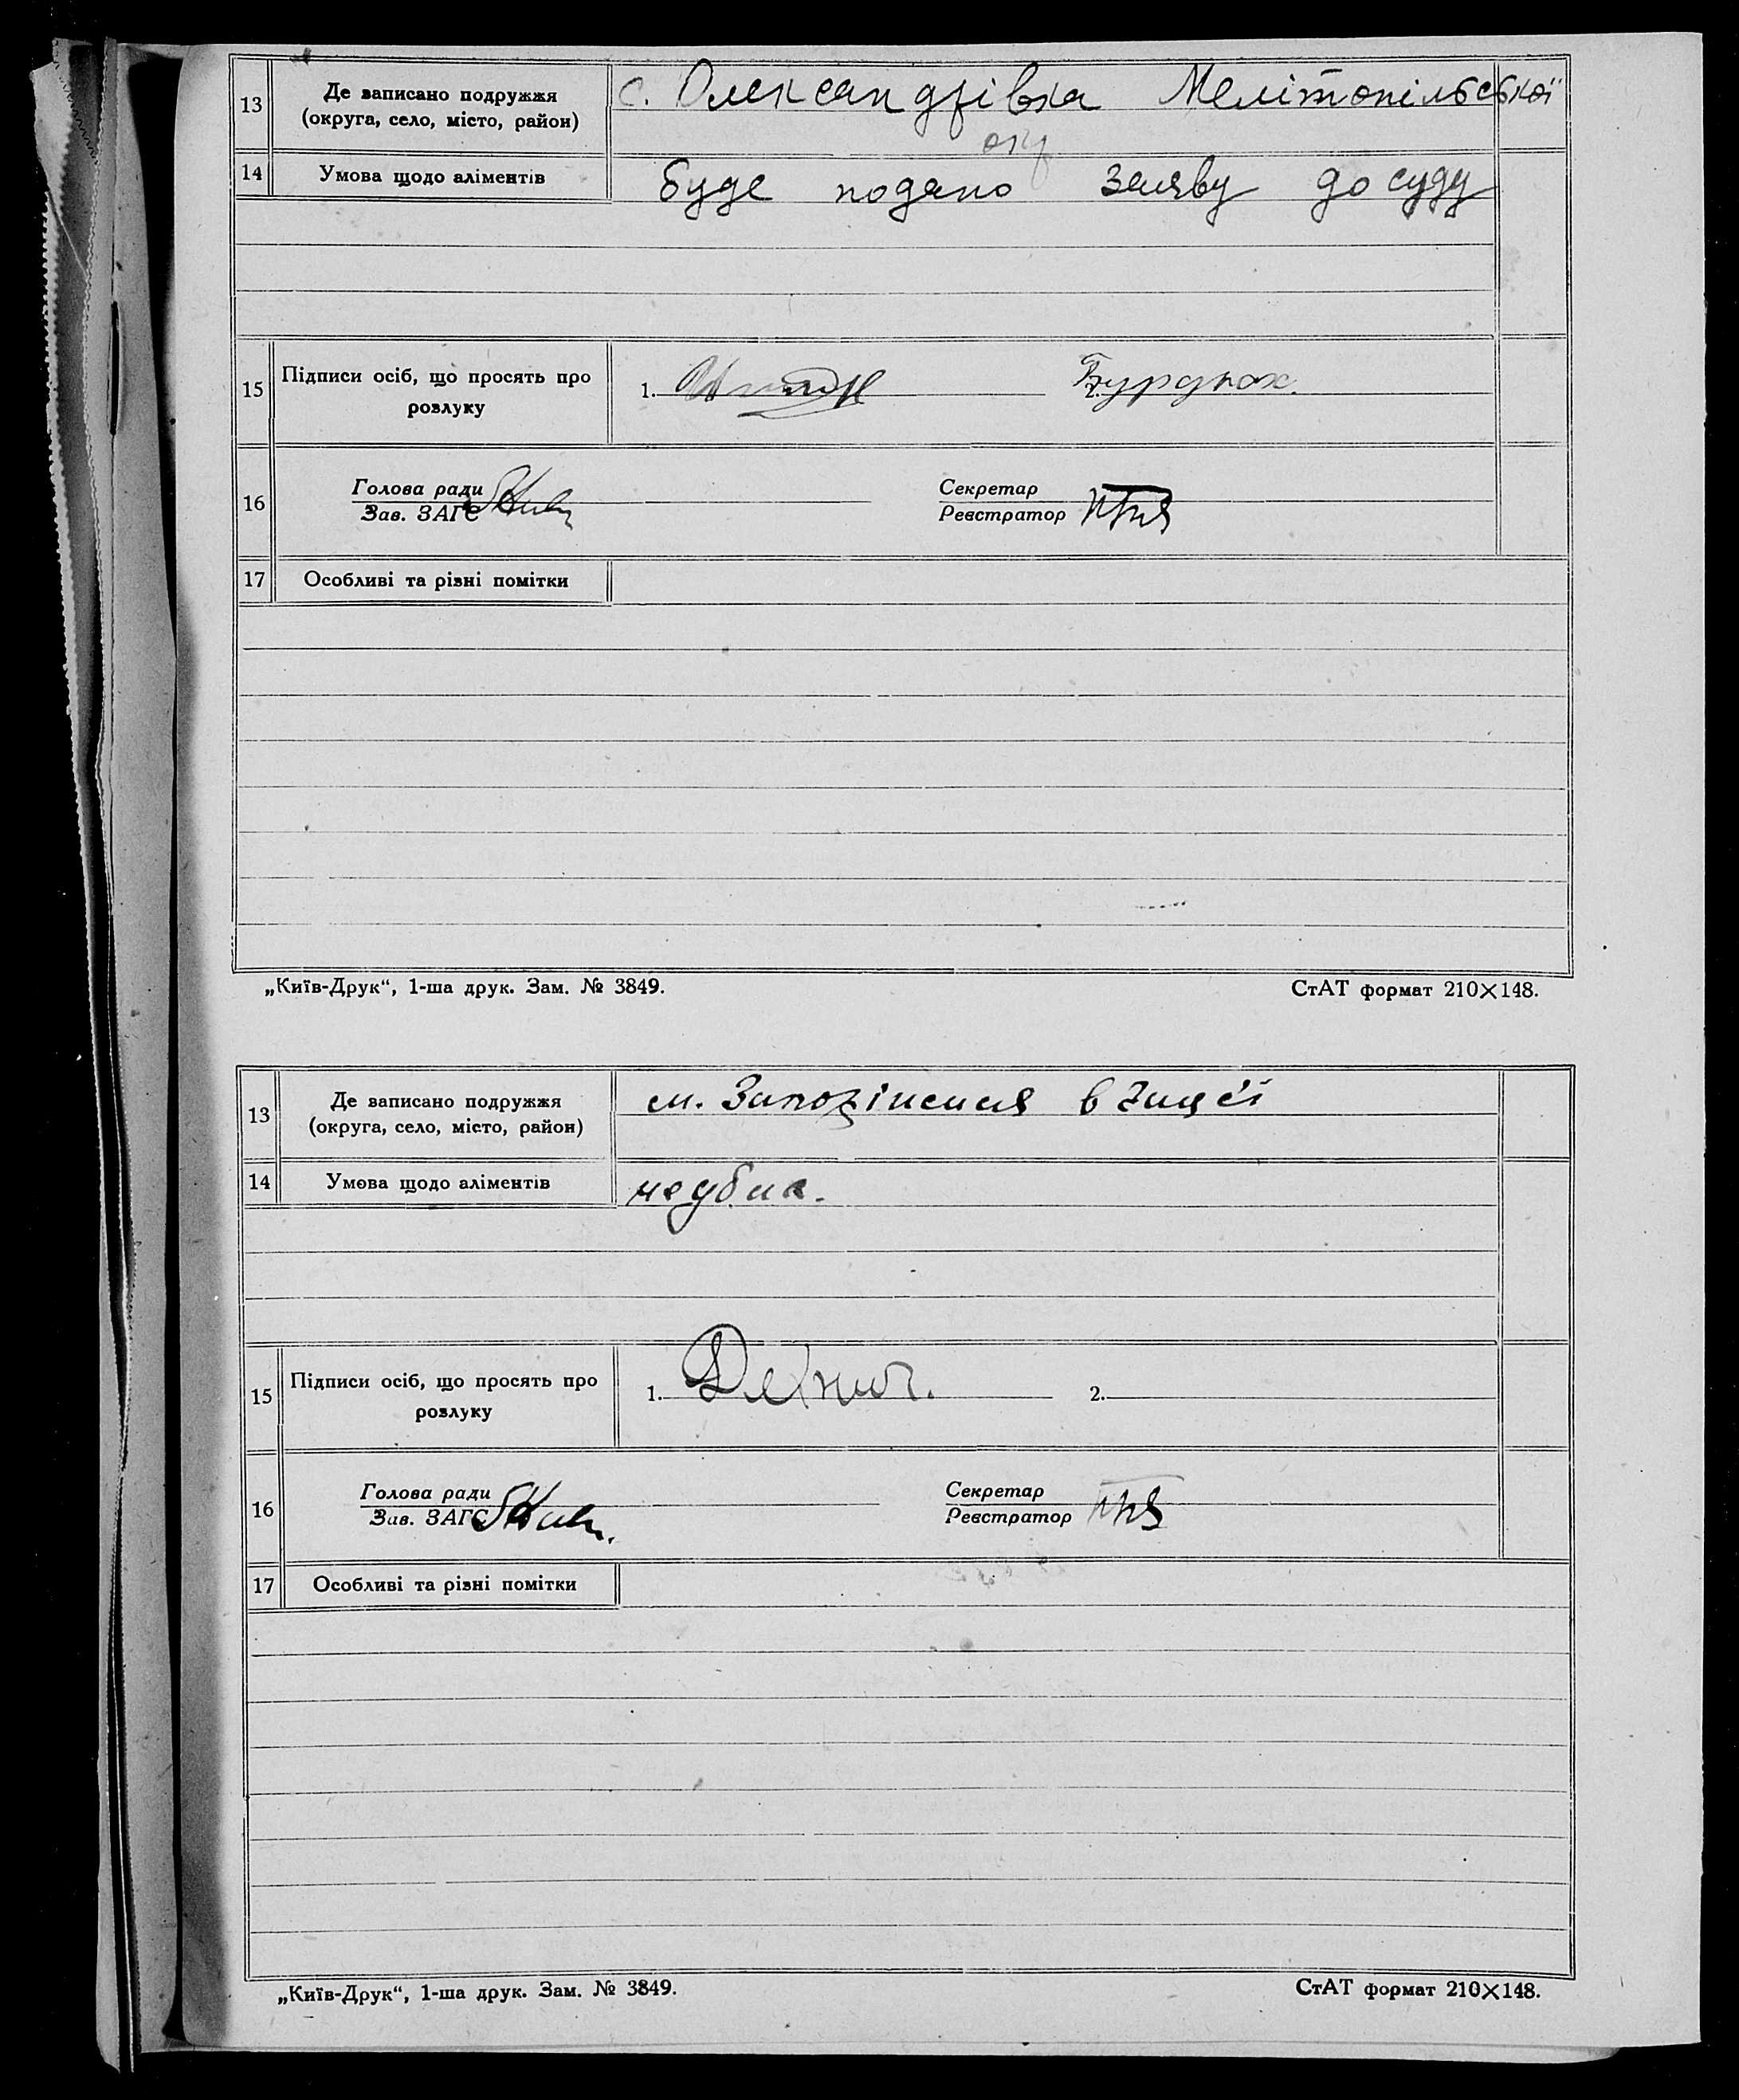 13 Де записано подружжя с. Олександрівка Мелітопільської
(округа, село, місто, район) окр
14 Умова щодо аліментів буде подано заяву до суду
15 Підписи осіб, що просять про розлуку 1. 2. Бурднох.
16 Голова ради Секретар
Зав. ЗАГС Реєстратор
17 Особливі та різні помітки
„Київ-Друк“, 1-ша друк. Зам. № 3849. СтАТ формат 210×148.
13 Де записано подружжя м. Запоріжжя в
(округа, село, місто, район)
14 Умова щодо аліментів
15 Підписи осіб, що просять про розлуку 1. 2.
16 Голова ради Секретар
Зав. ЗАГС Реєстратор
17 Особливі та різні помітки
„Київ-Друк“, 1-ша друк. Зам. № 3849. СтАТ формат 210×148.